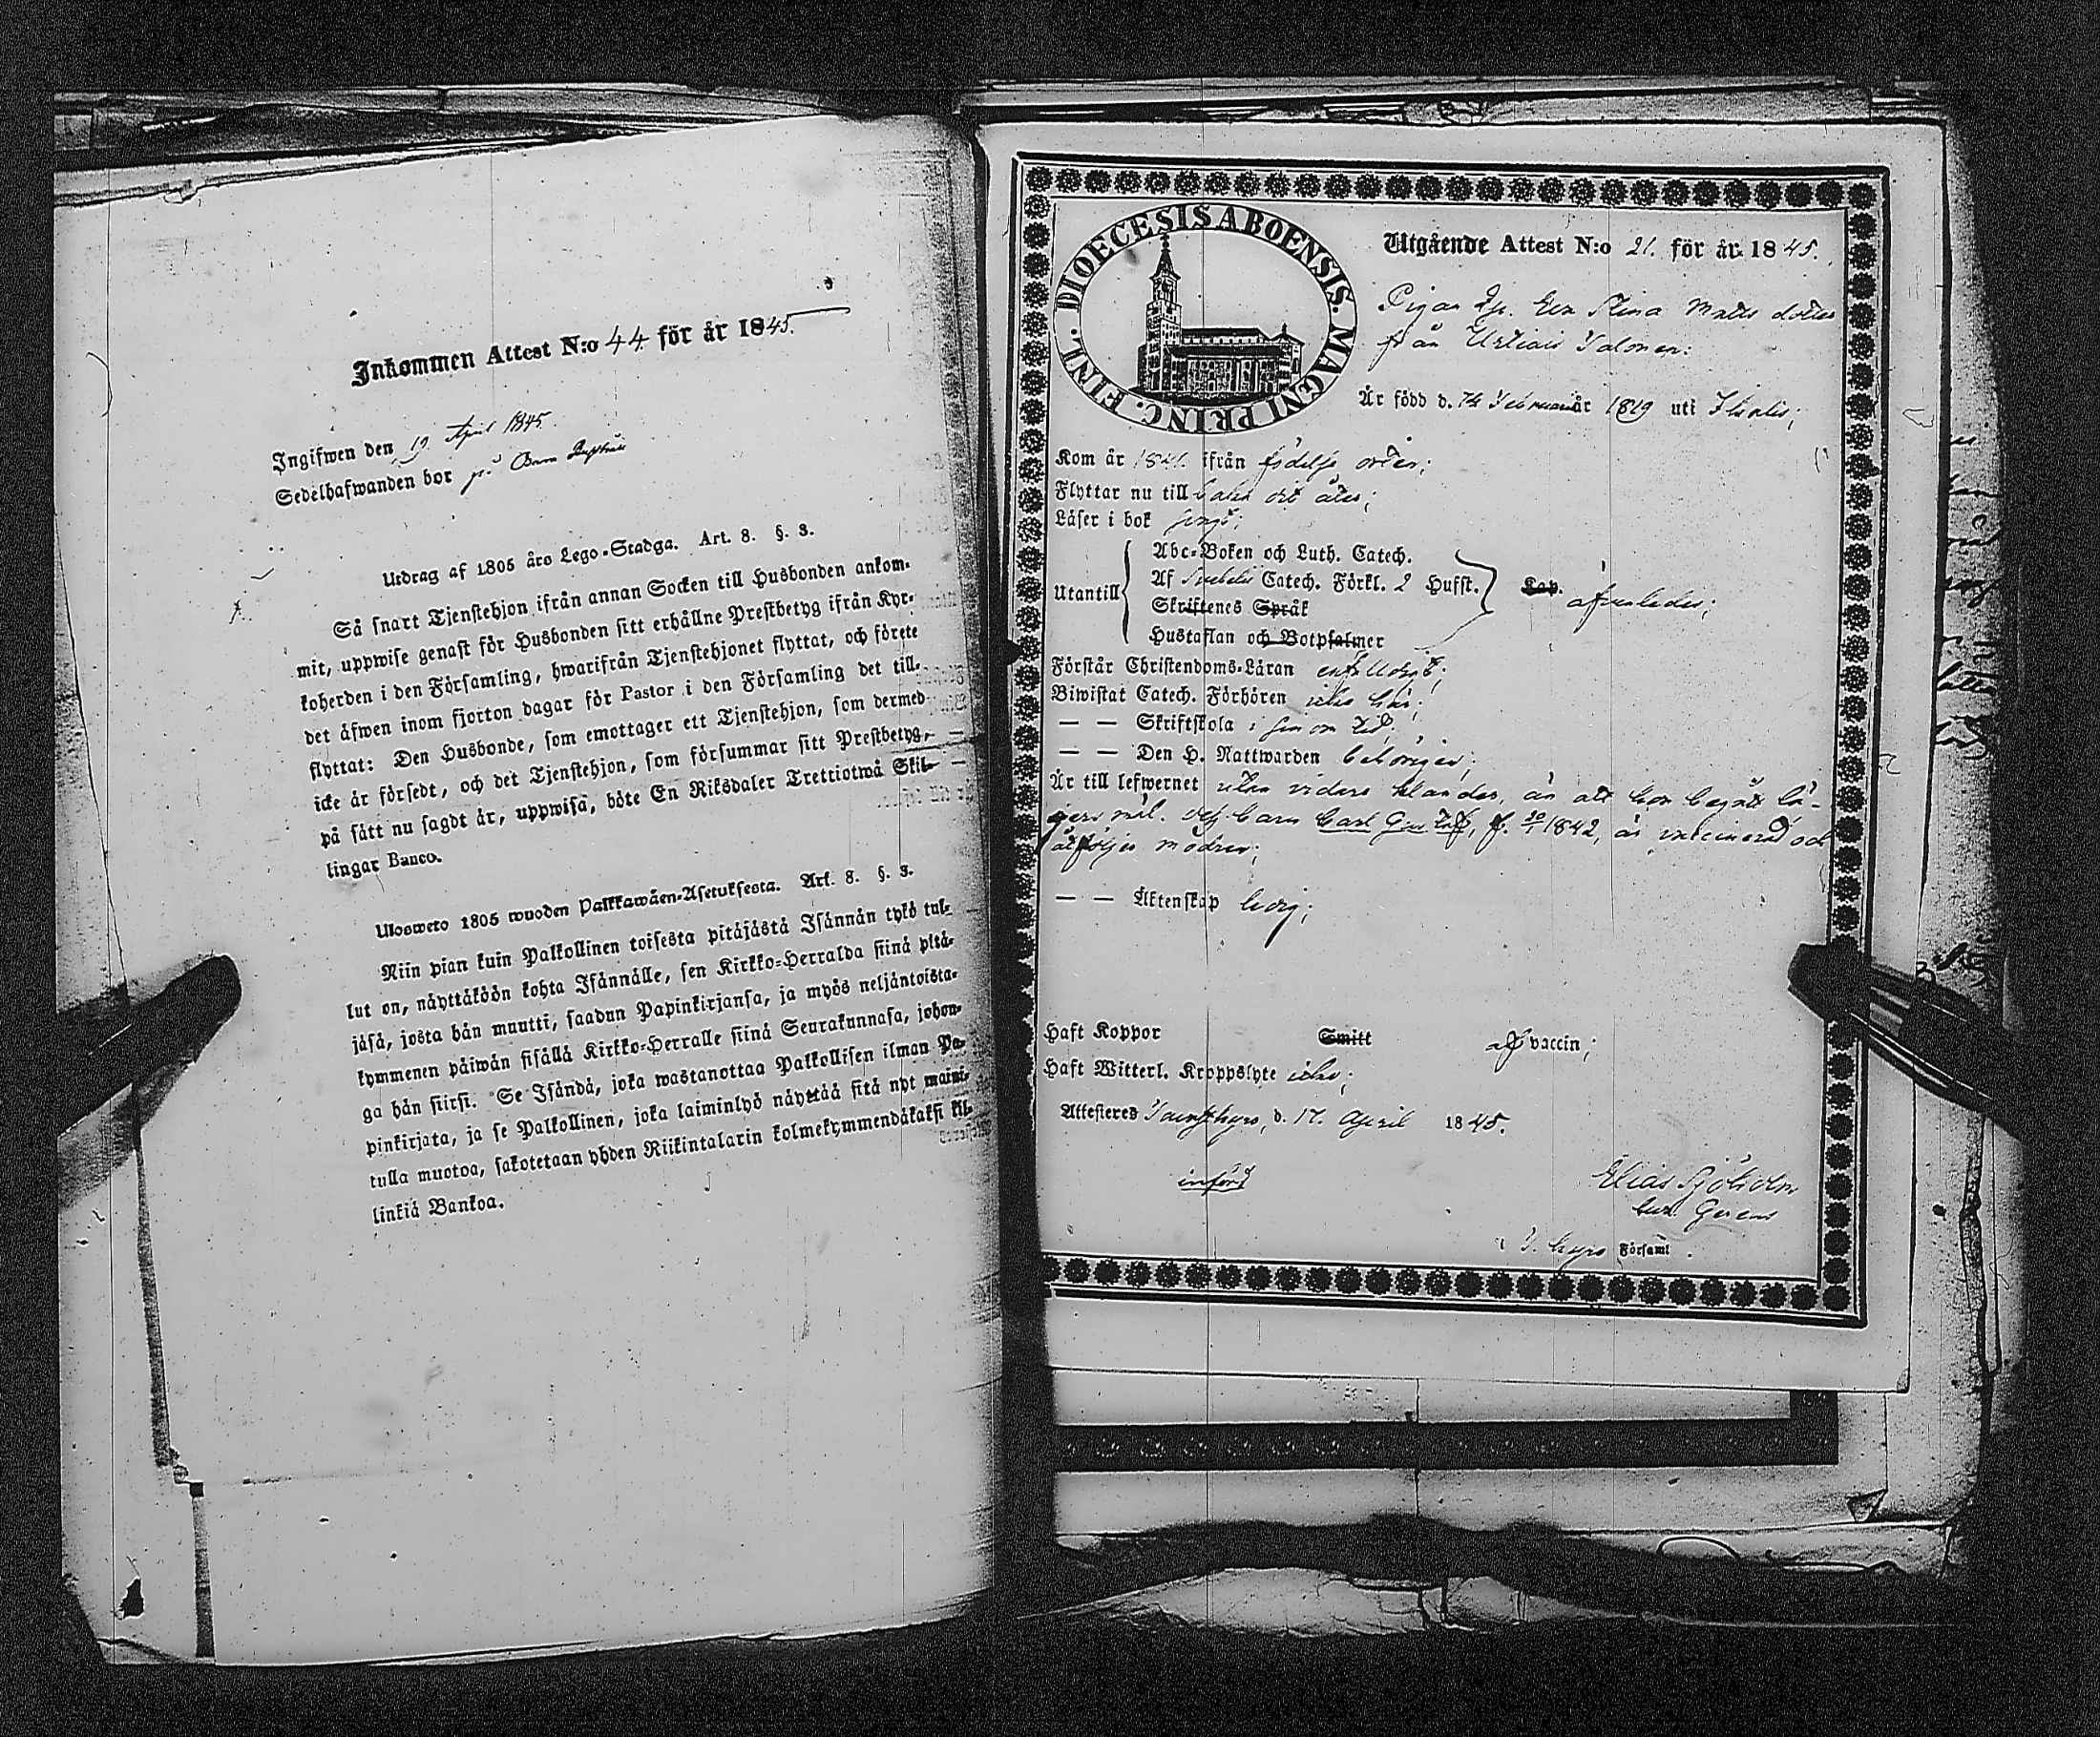 Inkommen Attest N:o 44. för år 1845.
Ingifwen den 19 April 1845.
Sedelhafwanden bor på
Utdrag af 1805 års Lego-Stadga. Art. 8. §. 3.
Så snart Tjenstehjon ifrån annan Socken till Husbonden ankom-
mit, uppwise genast för Husbonden sitt erhållne Prestbetyg ifrån Kyr-
koherden i den Församling, hwarifrån Tjenstehjonet flyttat, och förete
det äfwen inom fjorton dagar för Pastor i den Församling det till-
flyttat: Den Husbonde, som emottager ett Tjenstehjon, som dermed
icke är försedt, och det Tjenstehjon, som försummar sitt Prestbetyg,
på sätt nu sagdt är, uppwisa, böte En Riksdaler Trettiotwå Skil-
lingar Banco.
Ulosweto 1805 wuoden Palkkawäen-Asetuksesta. Art. 8. §. 3.
Niin pian kuin Palkollinen toisesta pitäjästä Isännän tykö tul-
lut on, näyttäköön kohta Isännälle, sen Kirkko-Herralda siinä pitä-
jäsä, josta hän muutti, saadun Papinkirjansa, ja myös neljäntoista-
kymmenen päiwän sisällä Kirkko-Herralle siinä Seurakunnasa, johon-
ga hän siirsi. Se Isändä, joka wastanottaa Palkollisen ilman Pa-
pinkirjata, ja se Palkollinen, joka laiminlyö näyttää sitä nyt maini-
tulla muotoa, sakotetaan yhden Riikintalarin kolmekymmendäkaksi kil-
linkiä Bankoa.
DIOECESIS ABOENSIS. MAGNI PRINC. FINL.
Utgående Attest N:o 21. för år 1845.
Pigan Stina Matts dotter
från Salonen:
Är född d. 14 Februarii år 1819 uti Ikalis;
Kom år 1841. ifrån födelse orten;
Flyttar nu till ort åter;
Läser i bok
Utantill
Abc-Boken och Luth. Catech.
Af Svebelii Catech. Förkl. 2 Hufst.
Skriftenes Språk
Hustaflan och Botpsalmer
Kap.
äfvenledes;
Förstår Christendoms-Läran enfaldigt;
Biwistat Catech. Förhören icke här;
— — Skriftskola i sinom tid;
— — Den H. Nattwarden behörigen;
Är till lefwernet utan vidare klander, än att hon begått lä-
gersmål. dess barn Carl Gustaf, f. 1842, är vaccinerad och
åtföljer modren;
— — Äktenskap ledig;
Haft Koppor Smitt af vaccin;
Haft Witterl. Kroppslyte icke;
Attesteres Tawastkyro, d. 17. April 1845.
införd
Elias Sjöholm
Cur. Gerens
i T. kyro Församl.